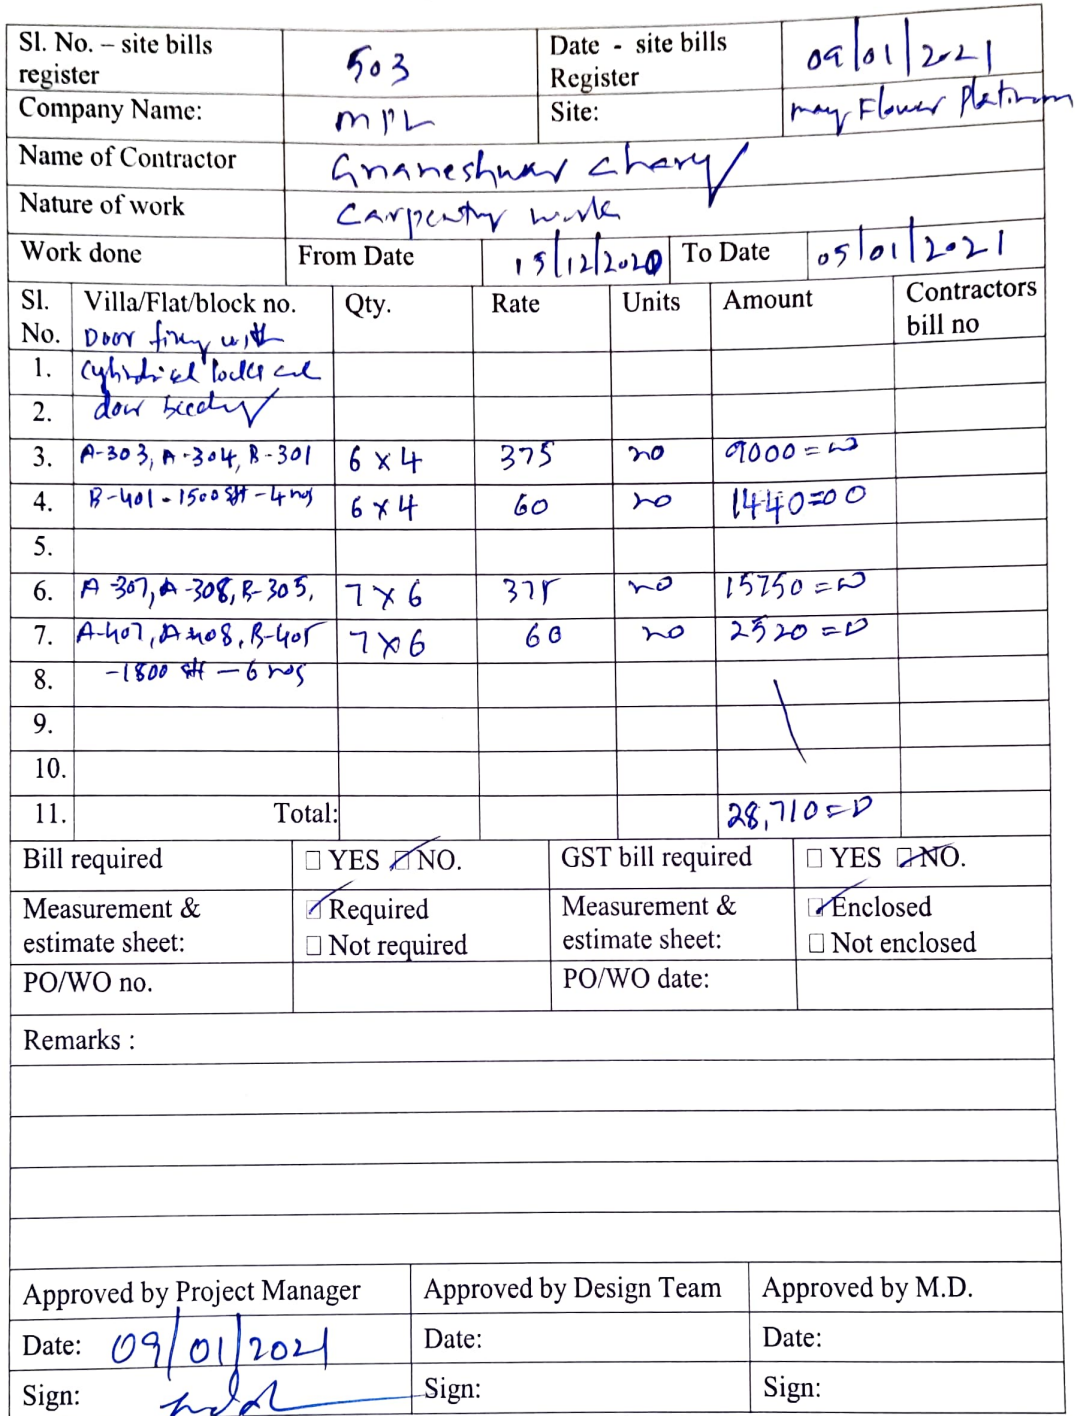 Sl. No. – site bills register 503 Date - site bills Register 09/01/2021
Company Name: MPL Site: may Flower Platinum
Name of Contractor Gnaneshwar chary
Nature of work Carpentry work
Work done From Date 15/12/2020 To Date 05/01/2021
Sl. No. Villa/Flat/block no. Qty. Rate Units Amount Contractors bill no
Door fixing with
1. Cylindrical locks and
2. door beeding
3. A-303, A-304, B-301 6 x 4 375 no 9000=00
4. B-401 - 1500 sft - 4 nos 6 x 4 60 no 1440=00
5.
6. A-307, A-308, B-305, 7 x 6 375 no 15750=00
7. A-407, A-408, B-405 7 x 6 60 no 2520=00
8. -1800 sft - 6 nos
9.
10.
11. Total: 28,710=00
Bill required □ YES ☑ NO. GST bill required □ YES ☑ NO.
Measurement & estimate sheet: ☑ Required □ Not required Measurement & estimate sheet: ☑ Enclosed □ Not enclosed
PO/WO no. PO/WO date:
Remarks :
Approved by Project Manager Approved by Design Team Approved by M.D.
Date: 09/01/2021 Date: Date:
Sign: Sign: Sign: